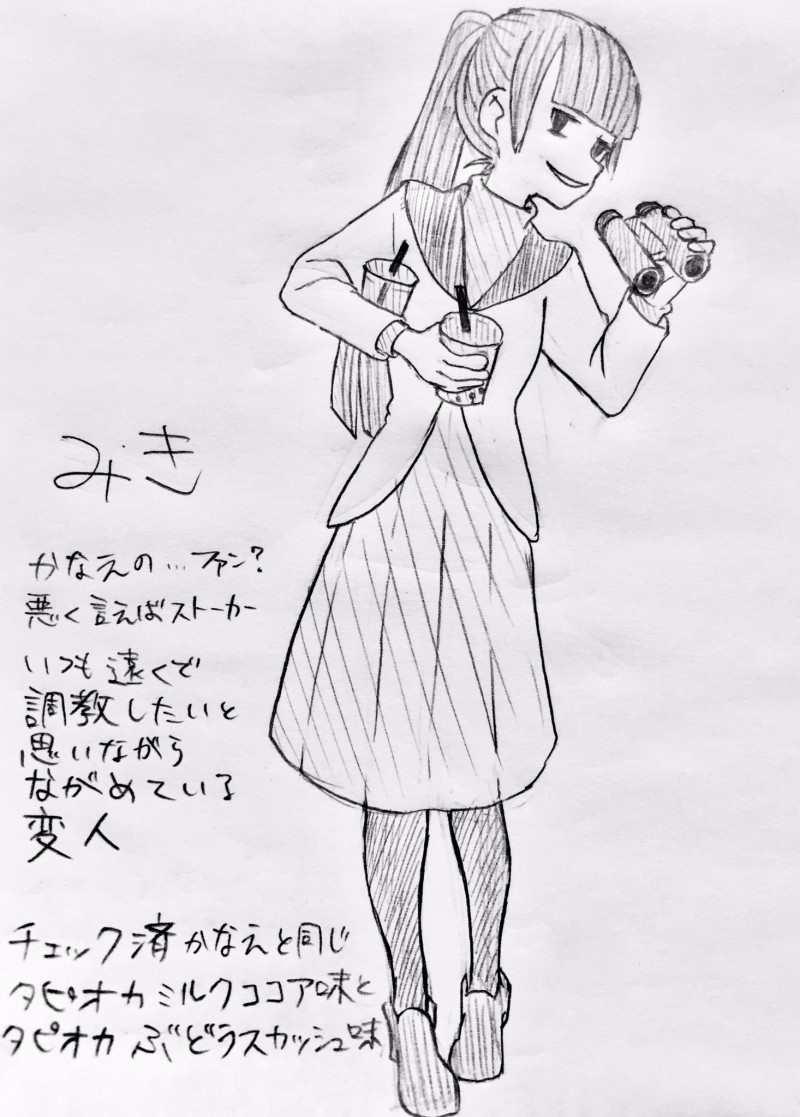 みき
かなえの…ファン?
悪く言えばストーカー
いつも遠くで
調教したいと
思いながら
ながめている
変人
チェック済かなえと同じ
タピオカミルクココア味と
タピオカぶどうスカッシュ味